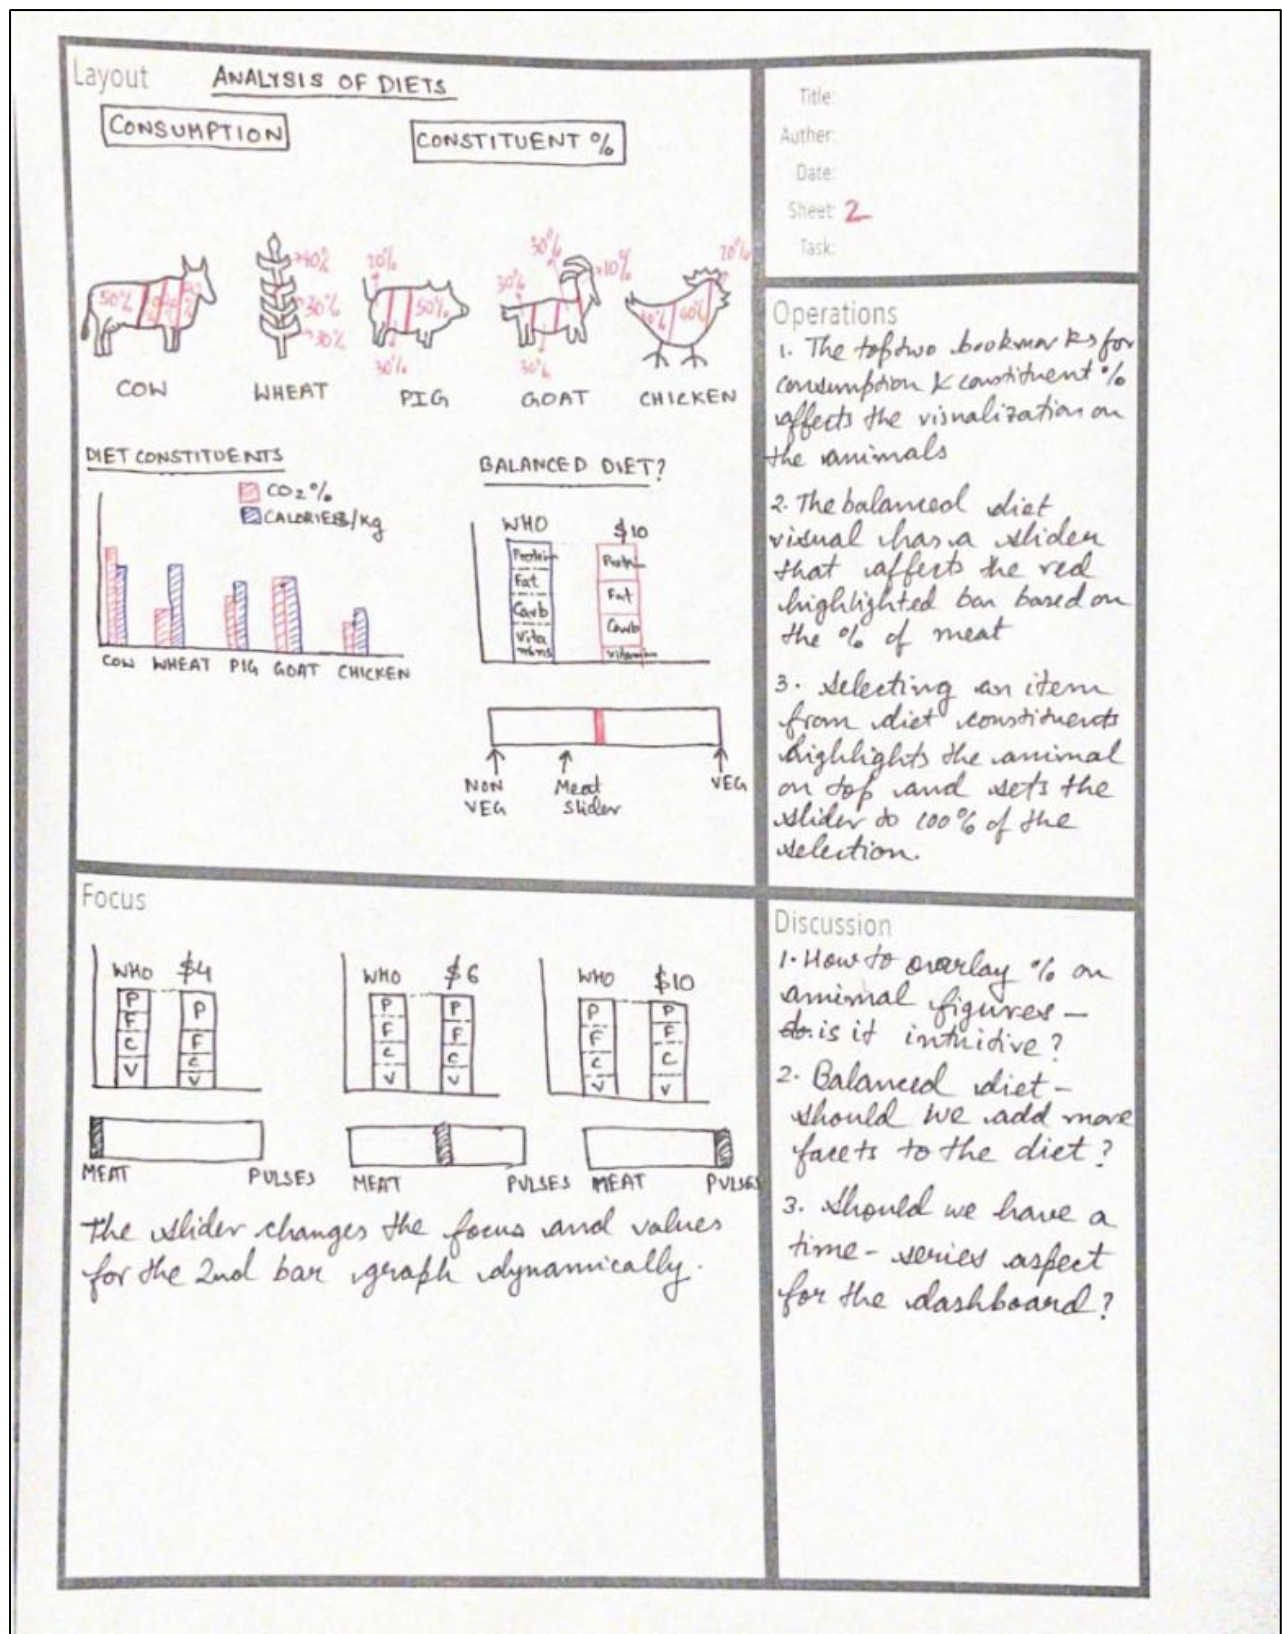 Layout
ANALYSIS OF DIETS
CONSUMPTION
CONSTITUENT %
50%
40%
30%
30%
20%
50%
30%
30%
30%
10%
30%
20%
40%
COW
WHEAT
PIG
GOAT
CHICKEN
DIET CONSTITUENTS
CO2 %
CALORIES/Kg
COW
WHEAT
PIG
GOAT
CHICKEN
BALANCED DIET?
WHO
$10
Protein
Fat
Carb
Vita
mins
Protein
Fat
Carb
Vitamin
NON
VEG
Meat
slider
VEG
Title:
Auther:
Date:
Sheet: 2
Task:
Operations
1. The top two bookmarks for
consumption & constituent %
affects the visualization on
the animals
2. The balanced diet
visual has a slider
that affects the red
highlighted bar based on
the % of meat
3. Selecting an item
from diet constituents
highlights the animal
on top and sets the
slider to 100% of the
selection.
Focus
WHO $4
P
F
C
V
P
F
C
V
MEAT PULSES
WHO $6
P
F
C
V
P
F
C
V
MEAT PULSES
WHO $10
P
F
C
V
P
F
C
V
MEAT PULSES
The slider changes the focus and values
for the 2nd bar graph dynamically.
Discussion
1. How to overlay % on
animal figures –
is it intuitive?
2. Balanced diet –
should we add more
facets to the diet?
3. Should we have a
time-series aspect
for the dashboard?